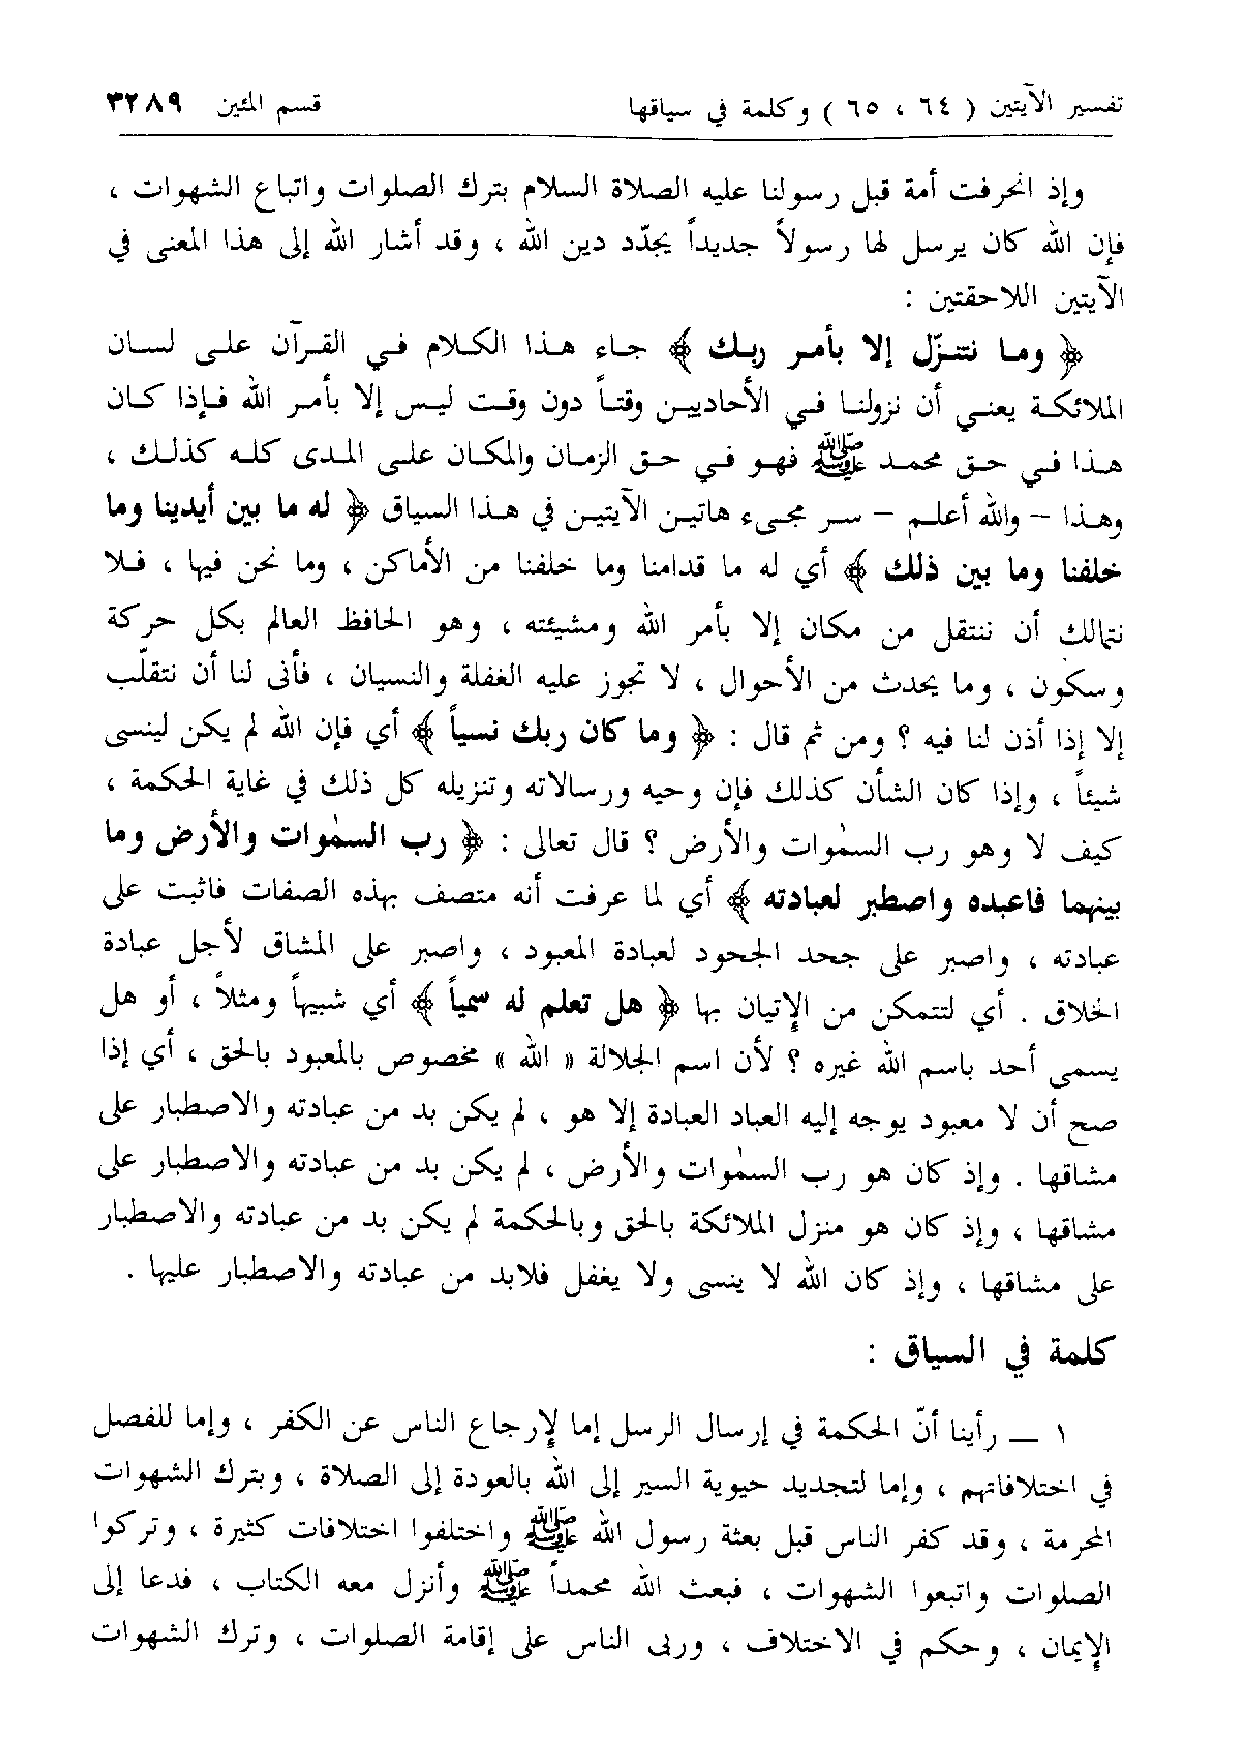 تفسير الآيتين ( ٦٤ ، ٦٥ ) وكلمة في سياقها قسم المئين ٣٢٨٩
وإذ انحرفت أمة قبل رسولنا عليه الصلاة السلام بترك الصلوات واتباع الشهوات ،
فإن الله كان يرسل لها رسولاً جديداً يجدّد دين الله ، وقد أشار الله إلى هذا المعنى في
الآيتين اللاحقتين :
﴿ وما نتنزّل إلا بأمر ربك ﴾ جاء هذا الكلام في القرآن على لسان
الملائكة يعني أن نزولنا في الأحاديين وقتاً دون وقت ليس إلا بأمر الله فإذا كان
هذا في حق محمد ﷺ فهو في حق الزمان والمكان على المدى كله كذلك ،
وهذا – والله أعلم – سر مجيء هاتين الآيتين في هذا السياق ﴿ له ما بين أيدينا وما
خلفنا وما بين ذلك ﴾ أي له ما قدامنا وما خلفنا من الأماكن ، وما نحن فيها ، فلا
نتمالك أن ننتقل من مكان إلا بأمر الله ومشيئته ، وهو الحافظ العالم بكل حركة
وسكون ، وما يحدث من الأحوال ، لا تجوز عليه الغفلة والنسيان ، فأنى لنا أن نتقلّب
إلا إذا أذن لنا فيه ؟ ومن ثم قال : ﴿ وما كان ربك نسياً ﴾ أي فإن الله لم يكن لينسى
شيئاً ، وإذا كان الشأن كذلك فإن وحيه ورسالاته وتنزيله كل ذلك في غاية الحكمة ،
كيف لا وهو رب السمٰوات والأرض ؟ قال تعالى : ﴿ رب السمٰوات والأرض وما
بينهما فاعبده واصطبر لعبادته ﴾ أي لما عرفت أنه متصف بهذه الصفات فاثبت على
عبادته ، واصبر على جحد الجحود لعبادة المعبود ، واصبر على المشاق لأجل عبادة
الخلاق . أي لتتمكن من الإتيان بها ﴿ هل تعلم له سمياً ﴾ أي شبيهاً ومثلاً ، أو هل
يسمى أحد باسم الله غيره ؟ لأن اسم الجلالة « الله » مخصوص بالمعبود بالحق ، أي إذا
صح أن لا معبود يوجه إليه العباد العبادة إلا هو ، لم يكن بد من عبادته والاصطبار على
مشاقها . وإذ كان هو رب السمٰوات والأرض ، لم يكن بد من عبادته والاصطبار على
مشاقها ، وإذ كان هو منزل الملائكة بالحق وبالحكمة لم يكن بد من عبادته والاصطبار
على مشاقها ، وإذ كان الله لا ينسى ولا يغفل فلابد من عبادته والاصطبار عليها .
كلمة في السياق :
١ — رأينا أنّ الحكمة في إرسال الرسل إما لإرجاع الناس عن الكفر ، وإما للفصل
في اختلافاتهم ، وإما لتجديد حيوية السير إلى الله بالعودة إلى الصلاة ، وبترك الشهوات
المحرمة ، وقد كفر الناس قبل بعثة رسول الله ﷺ واختلفوا اختلافات كثيرة ، وتركوا
الصلوات واتبعوا الشهوات ، فبعث الله محمداً ﷺ وأنزل معه الكتاب ، فدعا إلى
الإيمان ، وحكم في الاختلاف ، وربى الناس على إقامة الصلوات ، وترك الشهوات